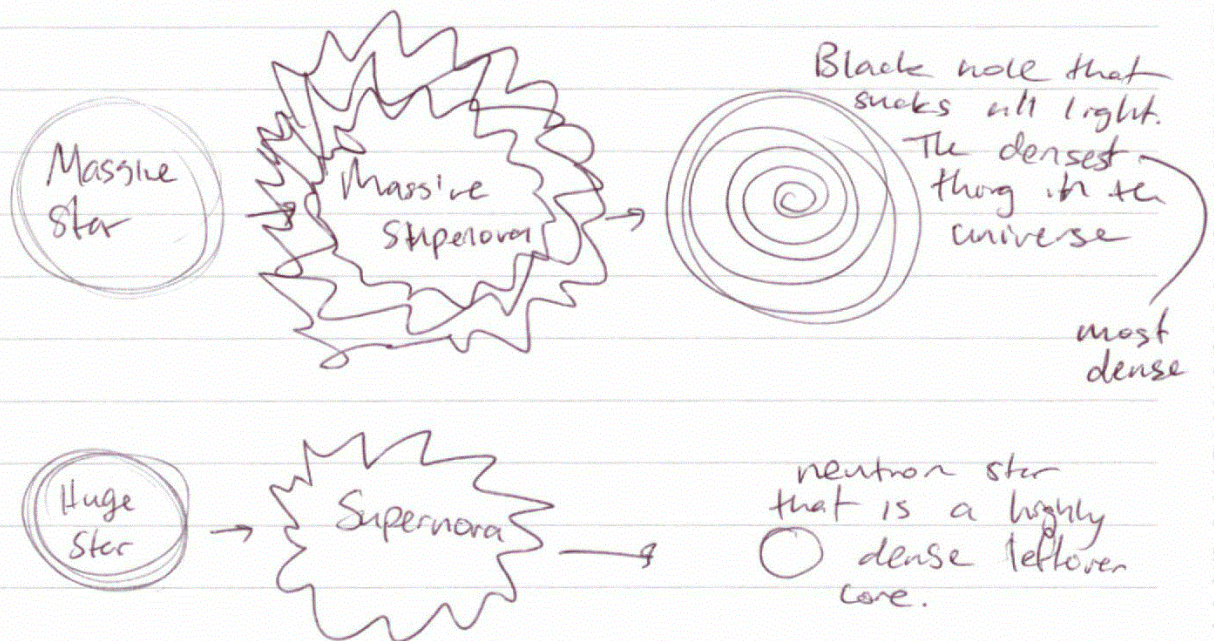 Massive
Star
Massive
Stupenova
Black hole that
sucks all light.
The densest
thing in the
universe
most
dense
Huge
Star
Supernova
neutron star
that is a highly
dense leftover
core.